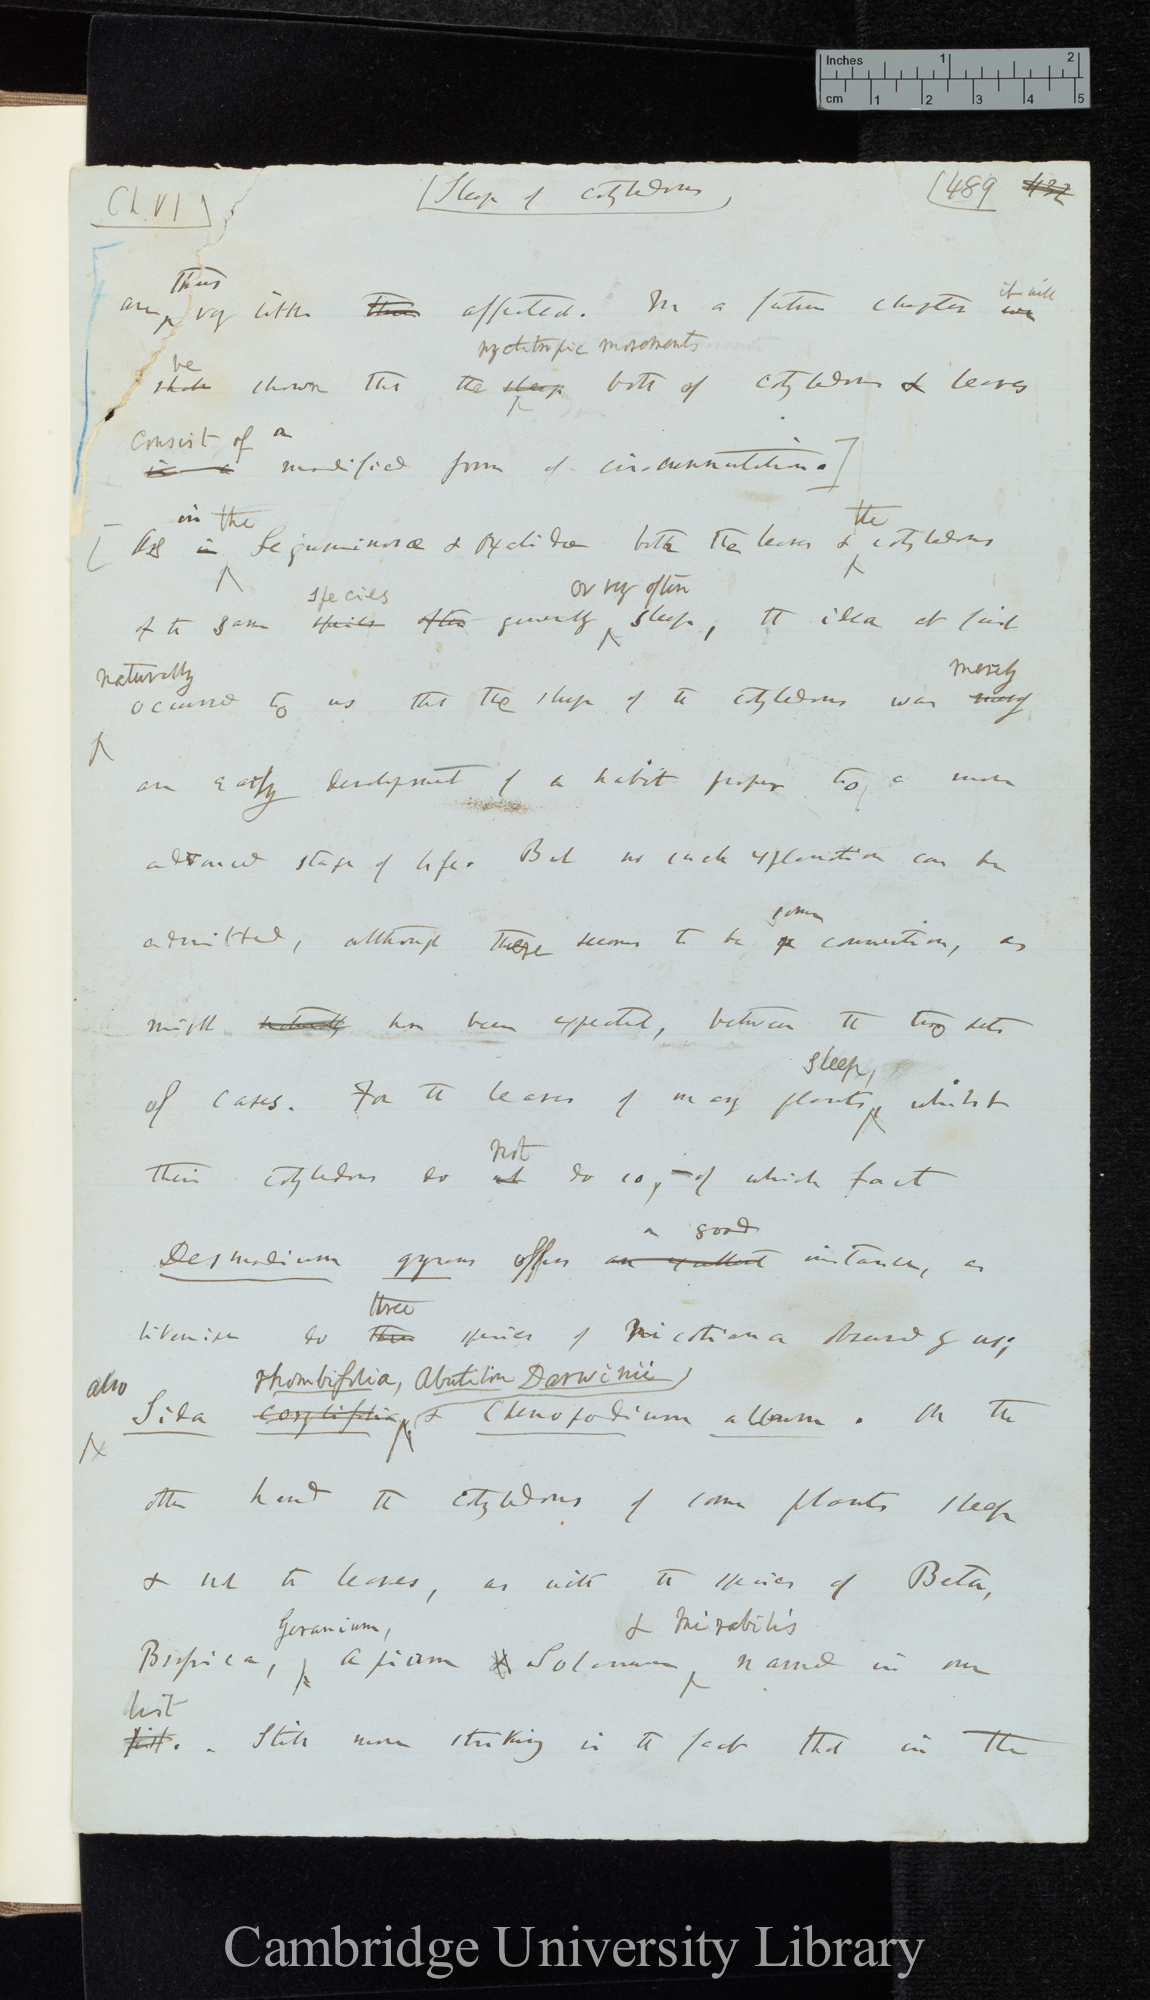 Inches 1 2
cm 1 2 3 4 5
Ch. VI
(Sleep of cotyledons)
(489 432
thus
are very little thus affected. In a future chapter we
it will
nyctitropic movements
be
shall shown that the sleep both of cotyledons & leaves
consist of a
is a modified form of circumnutation.]
in the the
[As in Leguminosæ & Oxalidæ both the leaves & cotyledons
species or very often
of the same species often generally sleep, the idea at first
naturally merely
occurred to us that the sleep of the cotyledons was merely
an early development of a habit proper to a more
advanced stage of life. But no such explanation can be
some
admitted, although there seems to be connection, as
might naturally have been expected, between the two sets
sleep,
of cases. For the leaves of many plants, whilst
not
their cotyledons do not do so, – of which fact
a good
Desmodium gyrans offers an excellent instance, as
three
likewise do three species of Nicotiana observed by us;
also rhombifolia, Abutilon Darwinii)
Sida & Chenopodium album. On the
other hand the cotyledons of some plants sleep
& not the leaves, as with the species of Beta,
Geranium, & Mirabilis
Brassica, Apium & Solanum, named in our
list
list. Still more striking is the fact that in the
Cambridge University Library